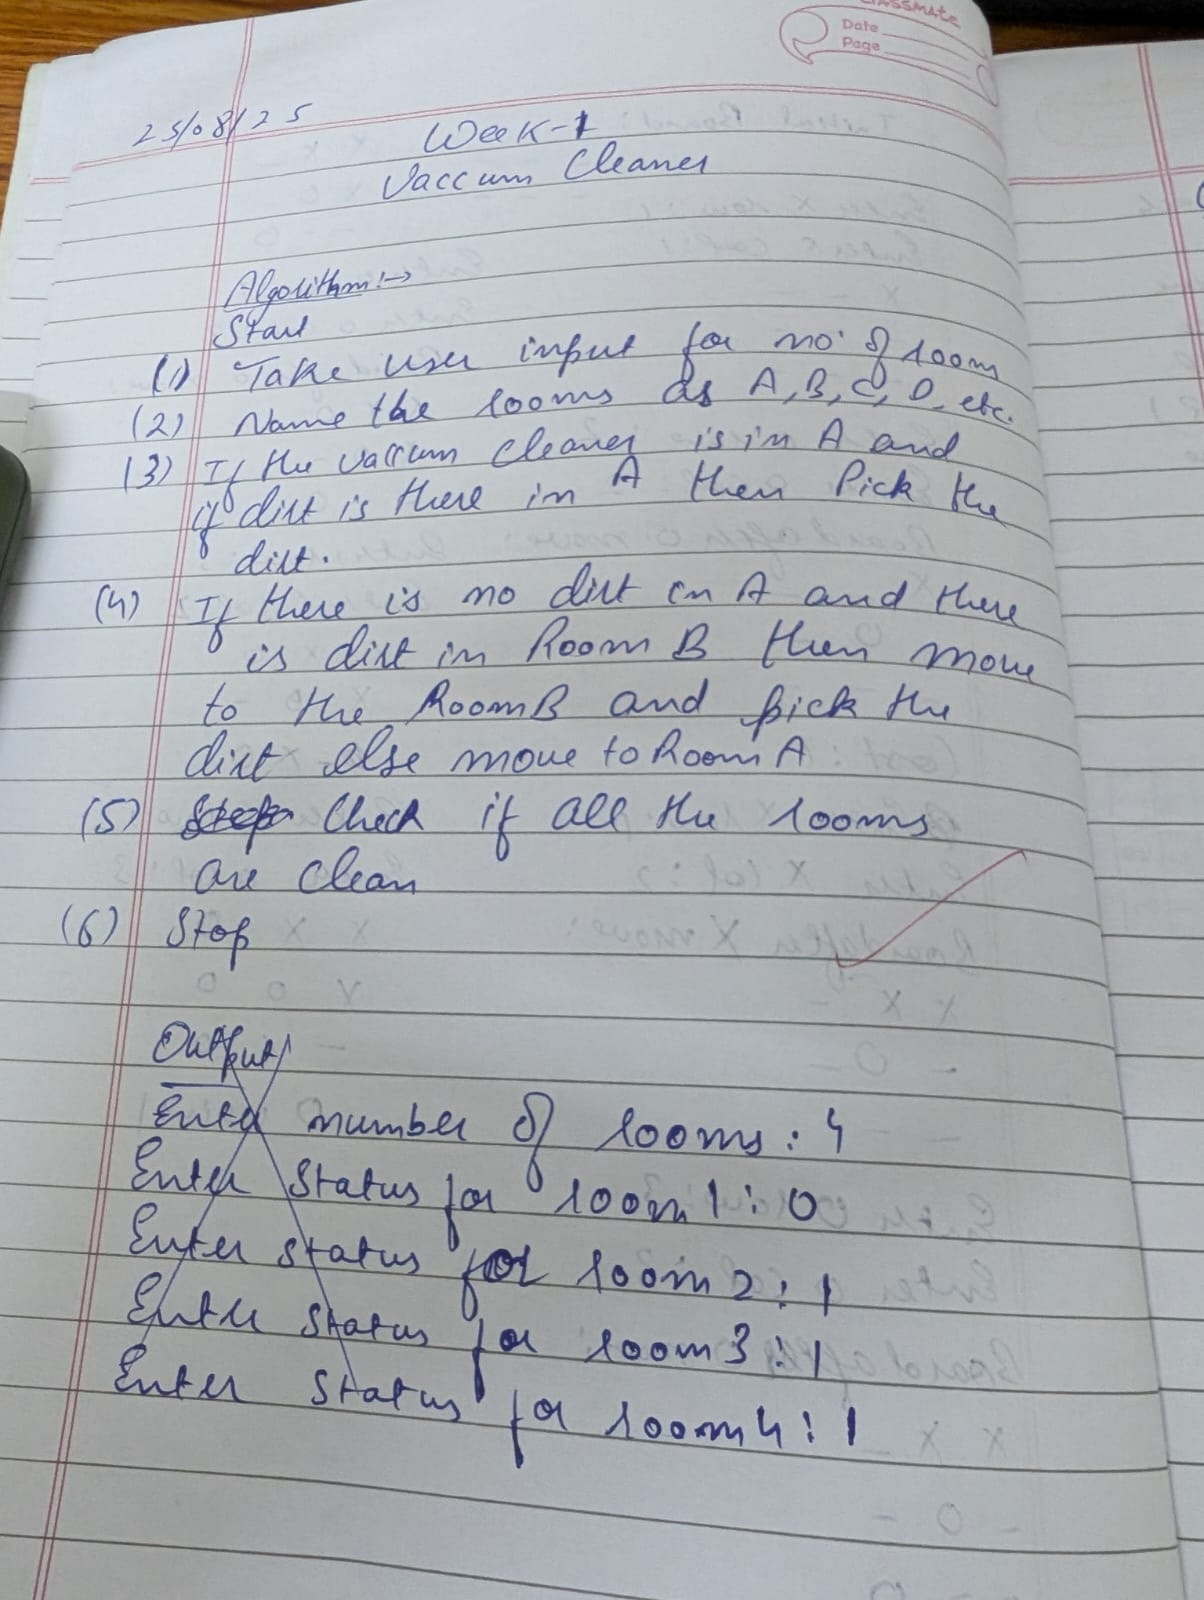 classmate
Date
Page
25/08/25
Week-1
Vaccum Cleaner
Algorithm:→
Start
(1) Take user input for no. of rooms
(2) Name the rooms as A, B, C, D, etc.
(3) If the vaccum cleaner is in A and
if dirt is there in A then Pick the
dirt.
(4) If there is no dirt in A and there
is dirt in Room B then move
to the Room B and pick the
dirt else move to Room A
(5) Check if all the rooms
are clean
(6) Stop
Output
Enter number of rooms: 4
Enter status for room 1: 0
Enter status for room 2: 1
Enter status for room 3: 1
Enter status for room 4: 1